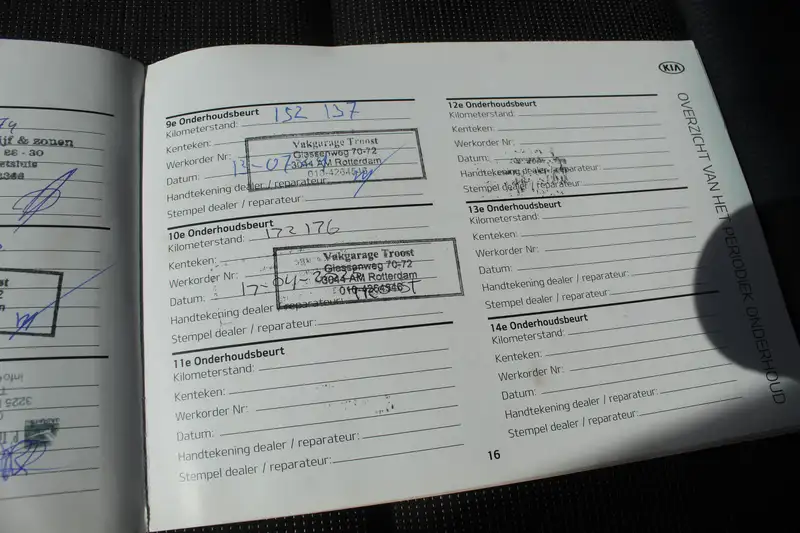 & zonen
9e Onderhoudsbeurt
Kilometerstand: 152 137
Kenteken:
Werkorder Nr:
Datum:
Handtekening dealer / reparateur:
Stempel dealer / reparateur:
Vakgarage Troost
Giessenweg 70-72
3044 AM Rotterdam
10e Onderhoudsbeurt
Kilometerstand: 172 176
Kenteken:
Werkorder Nr:
Datum: 17-04-
Handtekening dealer / reparateur:
Stempel dealer / reparateur:
Vakgarage Troost
Giessenweg 70-72
3044 AM Rotterdam
11e Onderhoudsbeurt
Kilometerstand:
Kenteken:
Werkorder Nr:
Datum:
Handtekening dealer / reparateur:
Stempel dealer / reparateur:
12e Onderhoudsbeurt
Kilometerstand:
Kenteken:
Werkorder Nr:
Datum:
Handtekening dealer / reparateur:
Stempel dealer / reparateur:
13e Onderhoudsbeurt
Kilometerstand:
Kenteken:
Werkorder Nr:
Datum:
Handtekening dealer / reparateur:
Stempel dealer / reparateur:
14e Onderhoudsbeurt
Kilometerstand:
Kenteken:
Werkorder Nr:
Datum:
Handtekening dealer / reparateur:
Stempel dealer / reparateur:
16
KIA
OVERZICHT VAN HET PERIODIEK ONDERHOUD